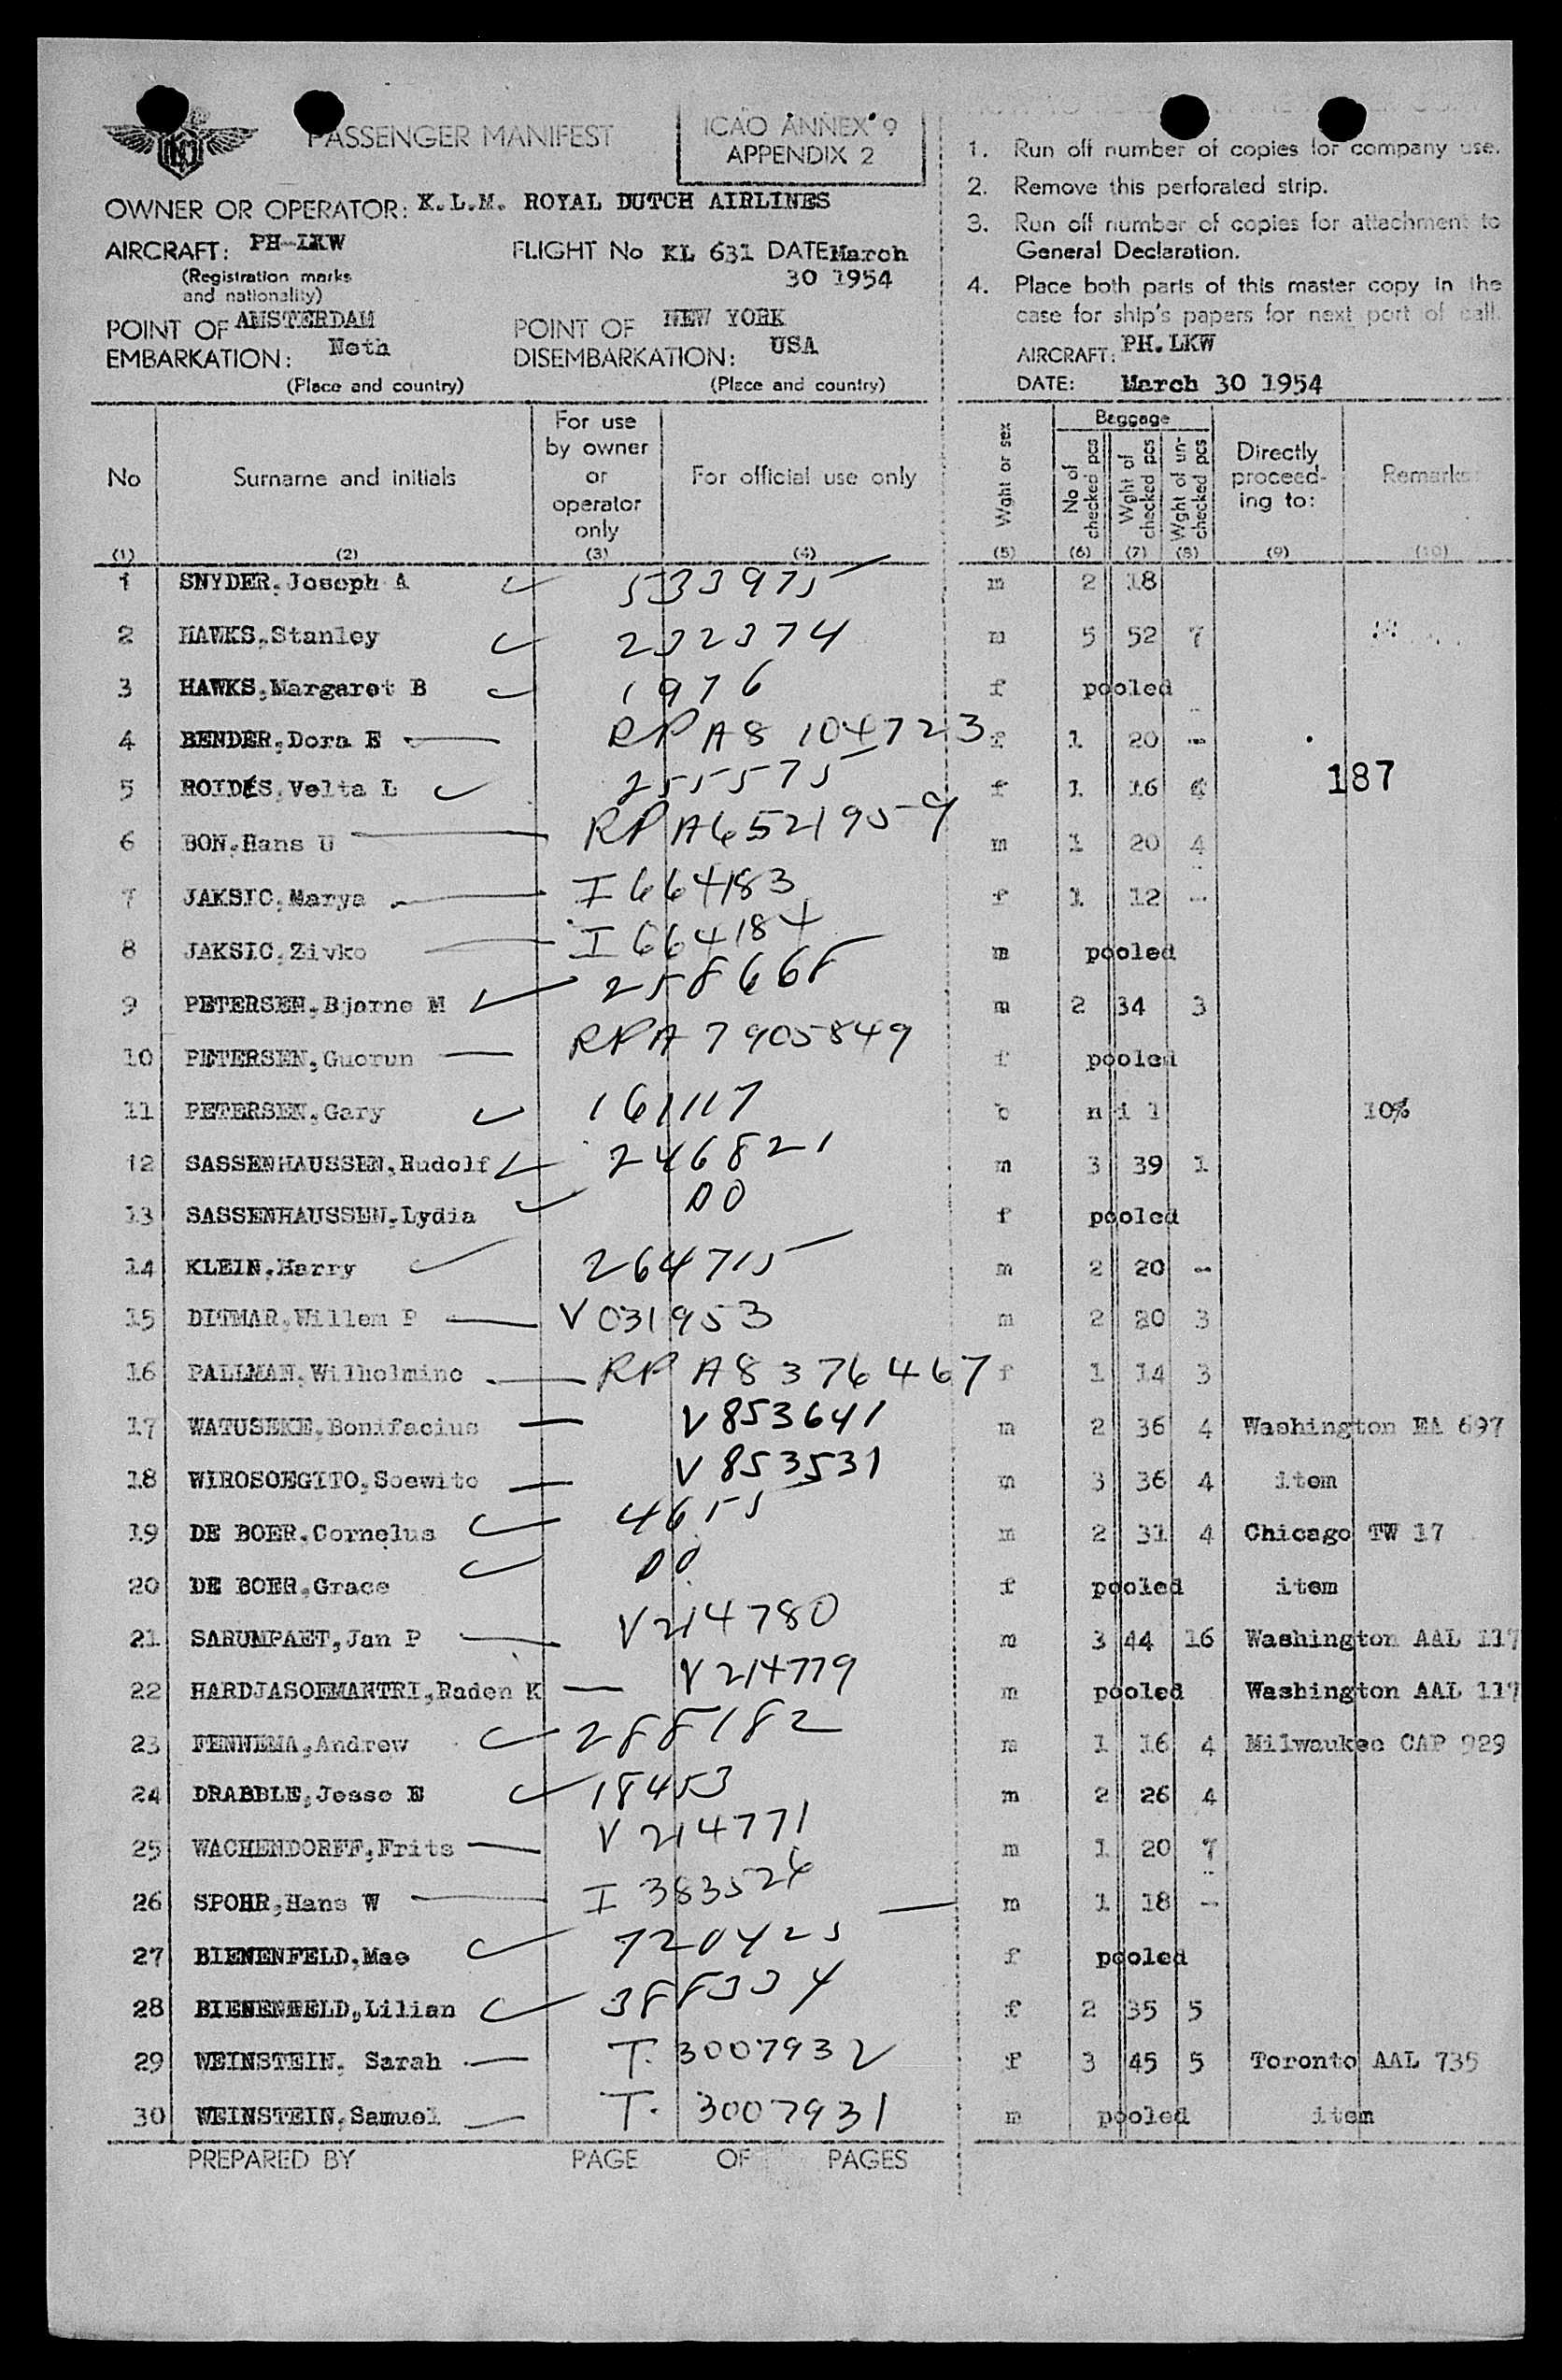 PASSENGER MANIFEST
ICAO ANNEX 9
APPENDIX 2
OWNER OR OPERATOR: K.L.M. ROYAL DUTCH AIRLINES
AIRCRAFT: PH-LKW
(Registration marks
and nationality)
FLIGHT No KL 631 DATE March
30 1954
POINT OF AMSTERDAM
EMBARKATION: Neth
(Place and country)
POINT OF NEW YORK
DISEMBARKATION: USA
(Place and country)
1. Run off number of copies for company use.
2. Remove this perforated strip.
3. Run off number of copies for attachment to
General Declaration.
4. Place both parts of this master copy in the
case for ship's papers for next port of call.
AIRCRAFT: PH.LKW
DATE: March 30 1954
No (1)
Surname and initials (2)
For use
by owner
or
operator
only
(3)
For official use only (4)
Wght or sex (5)
Baggage
No of checked pcs (6)
Wght of checked pcs (7)
Wght of un-checked pcs (8)
Directly
proceed-
ing to:
(9)
Remarks (10)
1 SNYDER,Joseph A 533975 m 2 18
2 HAWKS,Stanley 232374 m 5 52 7
3 HAWKS,Margaret B 1976 f pooled
4 BENDER,Dora E RPA8 104723 f 1 20 -
5 ROIDES,Velta L 255575 f 1 16 4
187
6 BON,Hans U RPA6521959 m 1 20 4
7 JAKSIC,Marya I 664183 f 1 12 -
8 JAKSIC,Zivko I 664184 m pooled
9 PETERSEN,Bjarne M 258668 m 2 34 3
10 PETERSEN,Guorun RPA 7905849 f pooled
11 PETERSEN,Gary 161117 b nil 10%
12 SASSENHAUSSEN,Rudolf 246821 m 3 39 1
13 SASSENHAUSSEN,Lydia DO f pooled
14 KLEIN,Harry 264715 m 2 20 -
15 DITMAR,Willem P V 031953 m 2 20 3
16 PALLMAN,Wilhelmine RPA 8376467 f 1 14 3
17 WATUSEKE,Bonifacius V 853641 m 2 36 4 Washington EA 697
18 WIROSOEGITO,Soewito V 853531 m 3 36 4 item
19 DE BOER,Cornelus 4655 m 2 31 4 Chicago TW 17
20 DE BOER,Grace DO f pooled item
21 SARUMPAET,Jan P V214780 m 3 44 16 Washington AAL 117
22 HARDJASOEMANTRI,Raden K V 214779 m pooled Washington AAL 117
23 FENNEMA,Andrew 288182 m 1 16 4 Milwaukee CAP 929
24 DRABBLE,Jesse E 18453 m 2 26 4
25 WACHENDORFF,Frits V 214771 m 1 20 7
26 SPOHR,Hans W I 383526 m 1 18 -
27 BIENENFELD,Mae 720425 f pooled
28 BIENENFELD,Lilian 388334 f 2 35 5
29 WEINSTEIN, Sarah T. 3007932 f 3 45 5 Toronto AAL 735
30 WEINSTEIN,Samuel T. 3007931 m pooled item
PREPARED BY PAGE OF PAGES